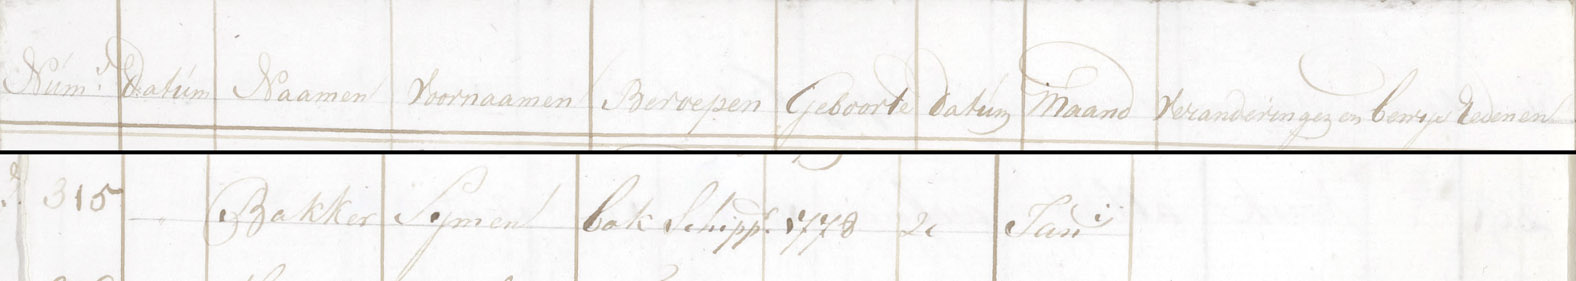 Num.r Datum Naamen Voornaamen Beroepen Geboorte datum Maand Veranderingen en benyge Redenen
315 Bakker Symen bok Schipp.r 1778 2e Junij